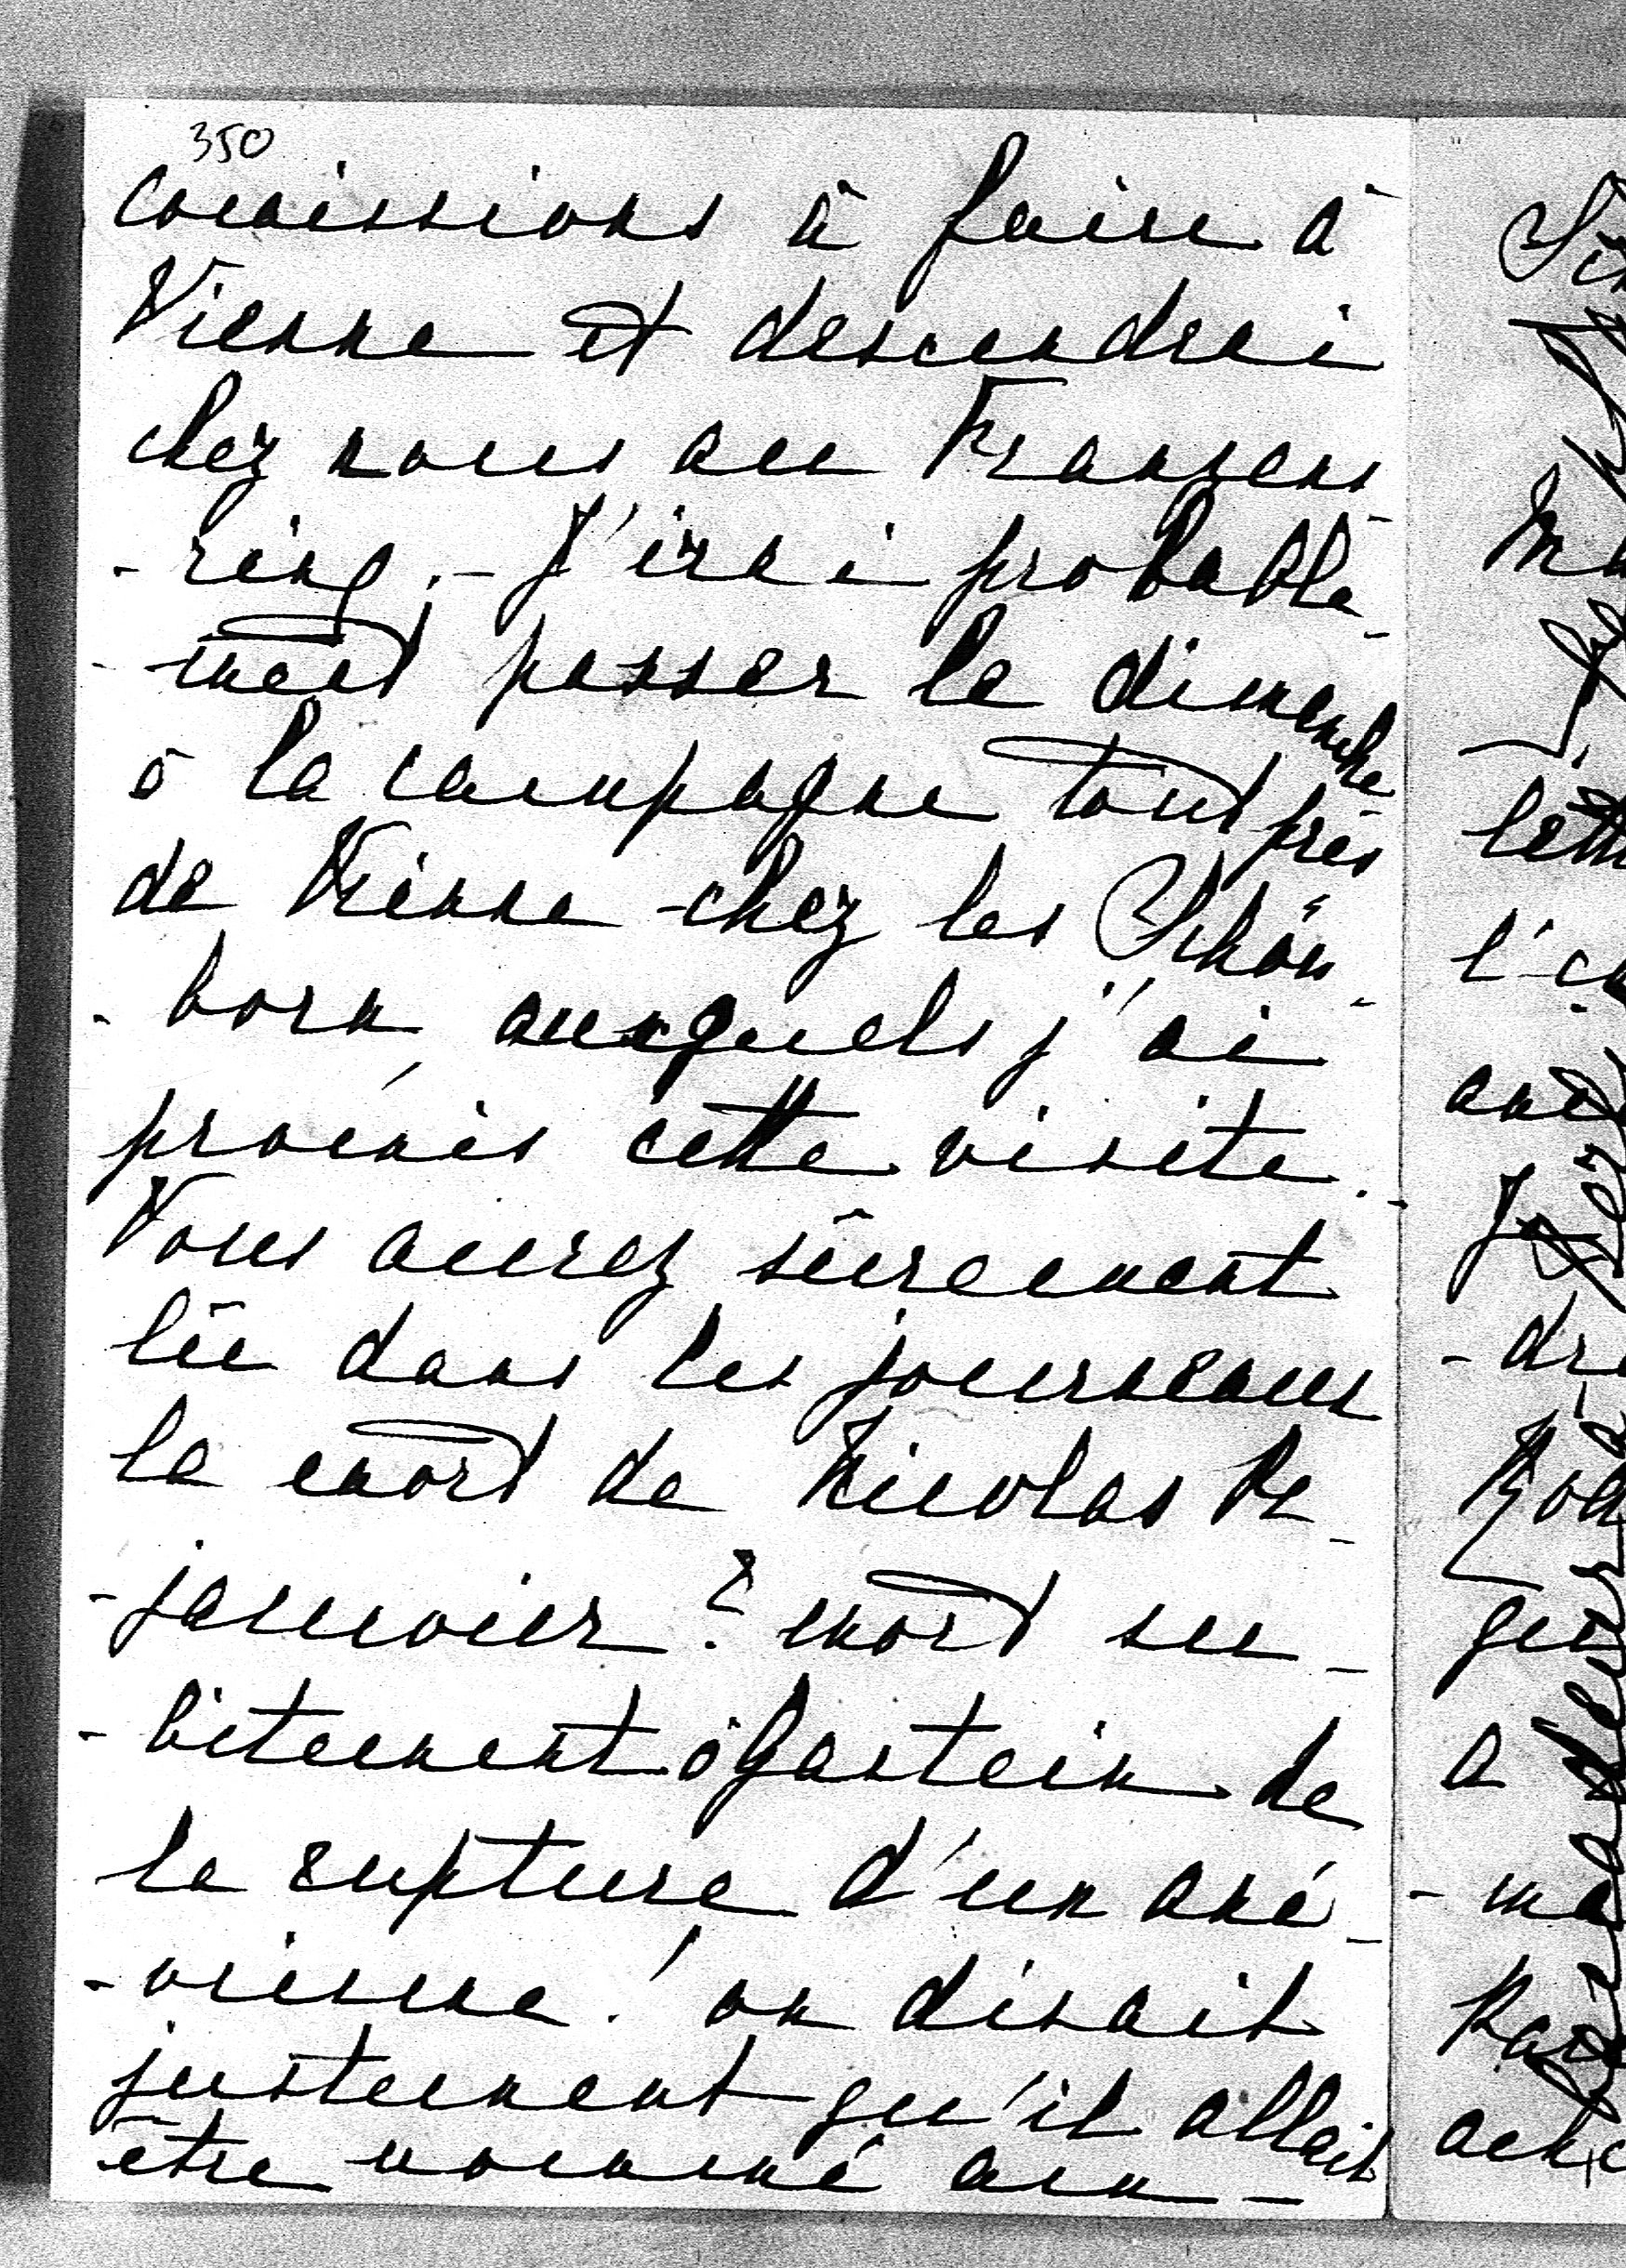 350
comissions à faire à
Vienne et descendrai
chez nous au Franzens-
-ring. - J'irai probable-
-ment passer le dimanche
à la campagne tout près
de Vienne chez les Schön-
-born, auxquels j'ai
promis cette visite.
Vous aurez sûrement
lû dans les journeaux
la mort de Nicolas
mort su-
-bitement à Gastein de
la rupture d'un ané-
-vrisme! on disait
justement qu'il allait
être nommé am-